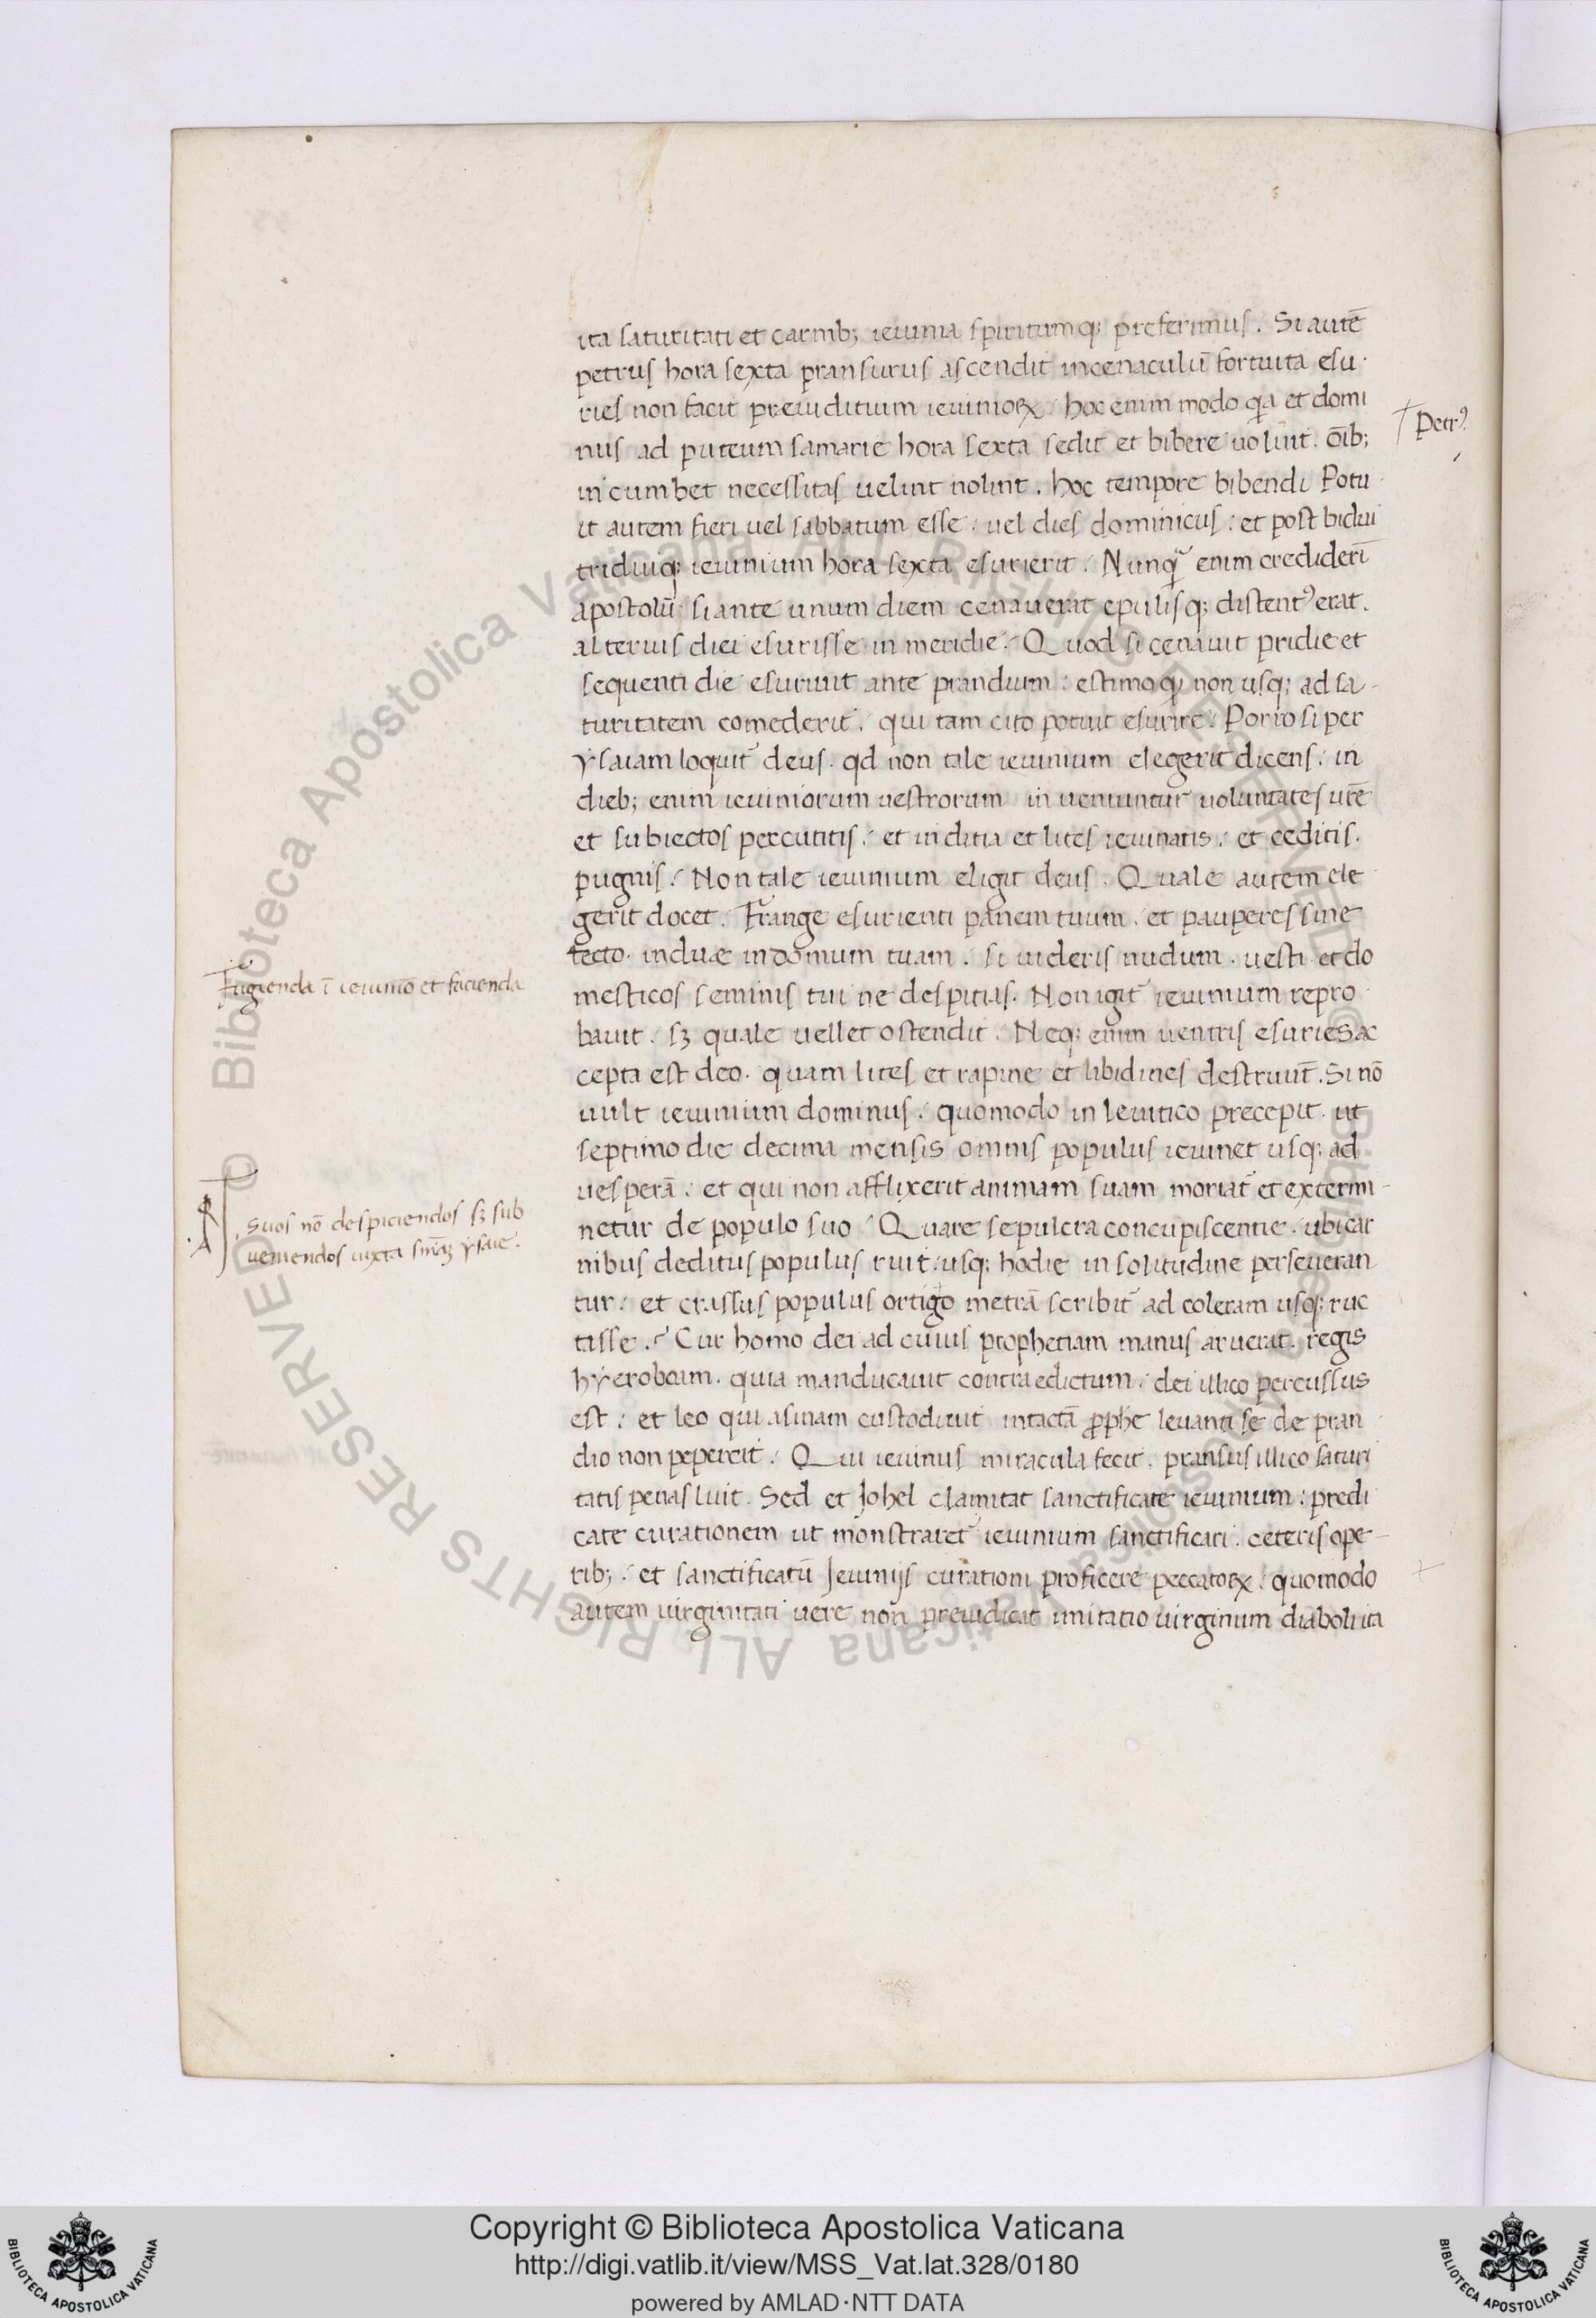 ita saturitati et carnib; ieiunia spiritumq; preferimus. Si autē
petrus hora sexta pransurus ascendit in cenaculū fortuita esu
ries non facit preiuditium ieiunioꝝ. hoc enim modo qa et domi
nus ad puteum samarie hora sexta sedit et bibere uoluit. oīb;
incumbet necessitas uelint nolint. hoc tempore bibendi Potu
it autem fieri uel sabbatum esse: uel dies dominicus: et post bidui
triduiq; ieiunium hora sexta esurierit. Nunq̄ enim credideri
apostolū: si ante unum diem cenauerat epulisq; distentꝰ erat.
alterius diei esurisse in meridie. Quod si cenauit pridie et
sequenti die esuriuit ante prandium: estimo q non usq; ad sa-
turitatem comederit. qui tam cito potuit esurire. Porro si per
ysaiam loquit̄ deus. qd non tale ieiunium elegerit dicens: in
dieb; enim ieiuniorum uestrorum inueniuntur uoluntates urē
et subiectos percutitis. et in ditia et lites ieiunatis. et ceditis.
pugnis. Non tale ieiunium eligit deus. Quale autem ele
gerit docet. Frange esurienti panem tuum. et pauperes sine
tecto. induc in domum tuam. si uideris nudum. uesti et do
mesticos seminis tui ne despitias. Non igit̄ ieiunium repro
bauit. sꝫ quale uellet ostendit. Neq; enim uentris esuries ac
cepta est deo. quam lites et rapine et libidines destruūt. Si nō
uult ieiunium dominus. quomodo in leuitico precepit. ut
septimo die decima mensis omnis populus ieiunet usq; ad
uesperā: et qui non afflixerit animam suam moriat̄ et extermi-
netur de populo suo. Quare sepulcra concupiscentie. ubi car
nibus deditus populus ruit. usq; hodie in solitudine perseueran
tur: et crassus populus ortigo metrā scribit̄ ad coleram usq; ruc
tasse. Cur homo dei ad cuius prophetiam manus aruerat. regis
hyeroboam. quia manducauit contra edictum. dei illico percussus
est: et leo qui asinam custodiuit intactā ꝓphe leuanti se de pran
dio non pepercit. Qui ieiunus miracula fecit. pransus illico saturi
tatis penas luit. Sed et Johel clamitat sanctificate ieiunium: predi
cate curationem ut monstraret̄ ieiunium sanctificari. ceteris ope-
rib;. et sanctificatū Jeiunijs curationi proficere peccatoꝝ. quomodo
autem uirginitati uere non preiudicat imitatio uirginum diaboli ita
Petrꝰ
Fugienda ī ieiunio et facienda
Suos nō despiciendos sꝫ sub
ueniendos iuxta sniāꝫ ysaie.
Copyright © Biblioteca Apostolica Vaticana
http://digi.vatlib.it/view/MSS_Vat.lat.328/0180
powered by AMLAD·NTT DATA
BIBLIOTECA APOSTOLICA VATICANA
BIBLIOTECA APOSTOLICA VATICANA
© Biblioteca Apostolica Vaticana ALL RIGHTS RESERVED
© Biblioteca Apostolica Vaticana ALL RIGHTS RESERVED